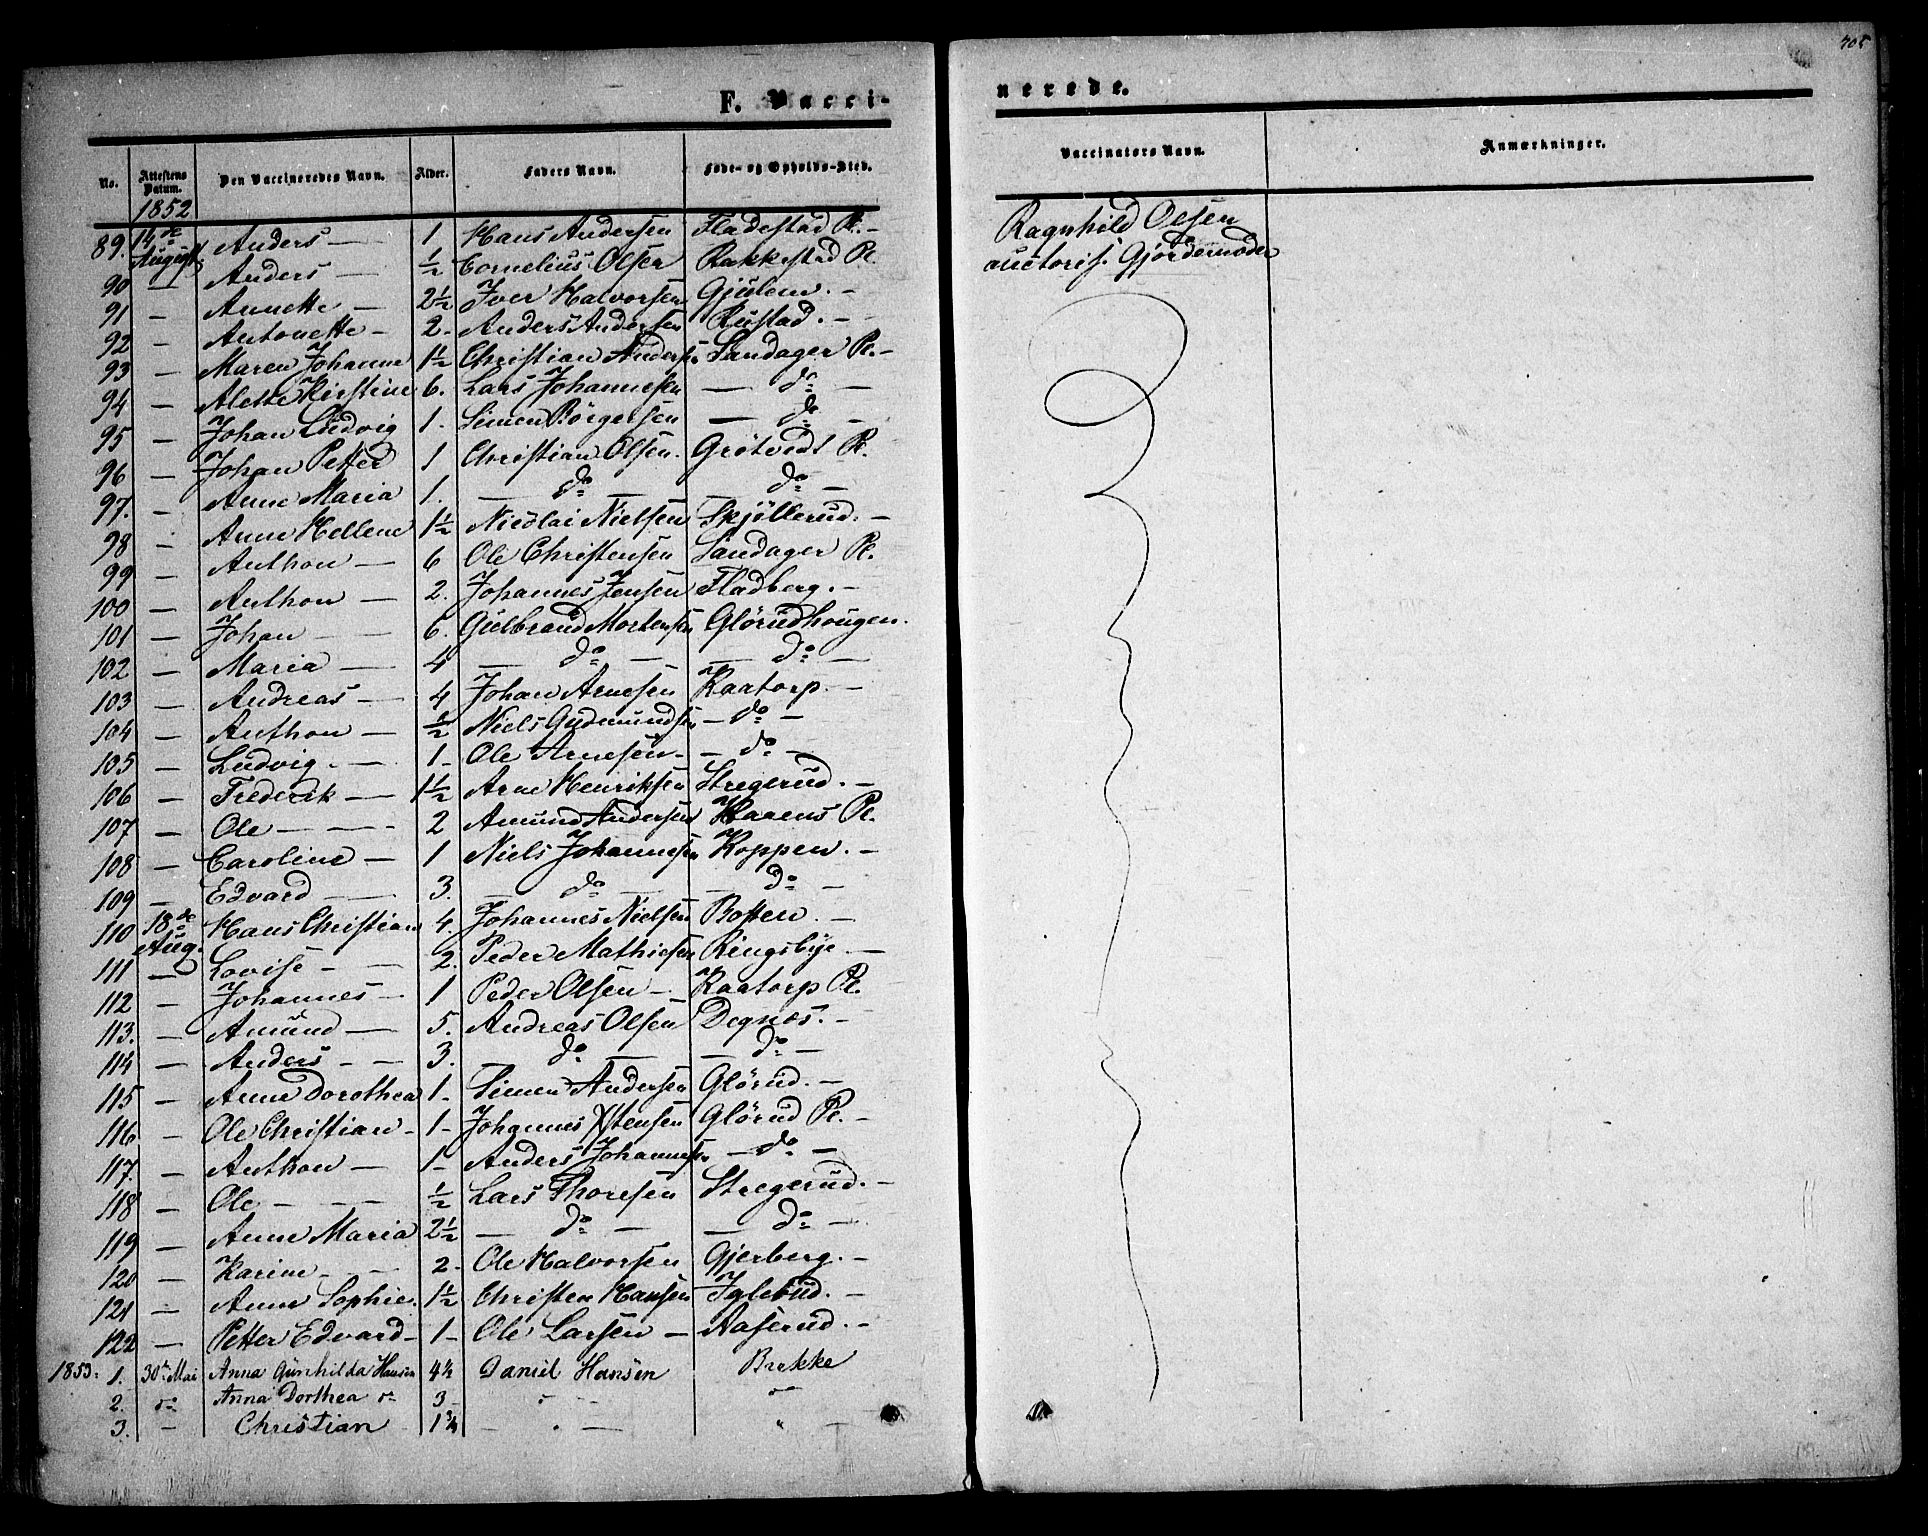 705
F. Vacci-
nerede.
No. Attestens Datum. Den Vaccineredes Navn. Alder. Faders Navn. Føde- og Opholds-Sted.
Vaccinators Navn. Anmærkninger.
1852
89. 14de August Anders — 1 Hans Andersen Fladestad Pl. —
90 — Anders — ½ Cornelius Olsen Rakkestad Pl.
91 — Annette — 2½ Iver Halvorsen Gjulem. —
92 — Antonette — 2 - Anders Andersen Rustad. —
93 — Maren Johanne 1½ Christian Anders. Sandager Pl. —
94 — Alette Kirstine 6. Lars Johannesen — do —
95 — Johan Ludvig 1. Simen Börgersen — do —
96 — Johan Petter 1 Christian Olsen. Grötvedt Pl.
97. — Anne Maria 1. — do — — do —
98 — Anne Hellene 1½ Nicolai Nielsen Skjöllerud. —
99 — Anthon — 6 Ole Christensen Sandager Pl.
100 — Anthon — 2. Johannes Jensen Fladberg. —
101 — Johan — 6. Gulbrand Mortensen Glörudhougen.
102 — Maria — 4 — do — — do —
103 — Andreas — 4 Johan Arnesen Kaatorp. —
104 — Anthon — ½ Niels Gudmundsen — do —
105 — Ludvig. — 1 - Ole Arnesen — — do —
106 — Frederik — 1½ Arne Henriksen Stregerud. —
107 — Ole — 2 Amund Andersen Haaens Pl.
108 — Caroline — 1 Niels Johannesen Koppen. —
109 — Edvard — 3. — do — — do —
110 18de Aug. Hans Christian 4. Johannes Nielsen Botten. —
111 — Lovise — 2. Peder Mathiesen Ringsbye. —
112 — Johannes — 1 Peder Olsen — Kaatorp Pl.
113. — Amund — 5. Andreas Olsen Degnæs. —
114 — Anders — 3. — do — — do —
115 — Anne Dorothea 1 - Simen Andersen Glörud. —
116 — Ole Christian — 1 - Johannes Stensen Glörud Pl. —
117. — Anthon — 1 - Anders Johannes. — do —
118 — Ole — ½ Lars Thoresen Stregerud. —
119 — Anne Maria 2½ — do — — do —
120 — Karine — 2 - Ole Halvorsen Gjerberg. —
121 — Anne Sophie. 1½ Christen Hansen Iglerud. —
122 — Petter Edvard — 1 - Ole Larsen — Aaserud. —
1853. 1. 30te Mai Anna Gunhilda Hansen 4¼ Daniel Hansen Brekke
2. do Anna Dorthea do 3 - " "
3. — Christian 1¾ — " — "
Ragnhild Olsen
auctoris. Gjordemoder